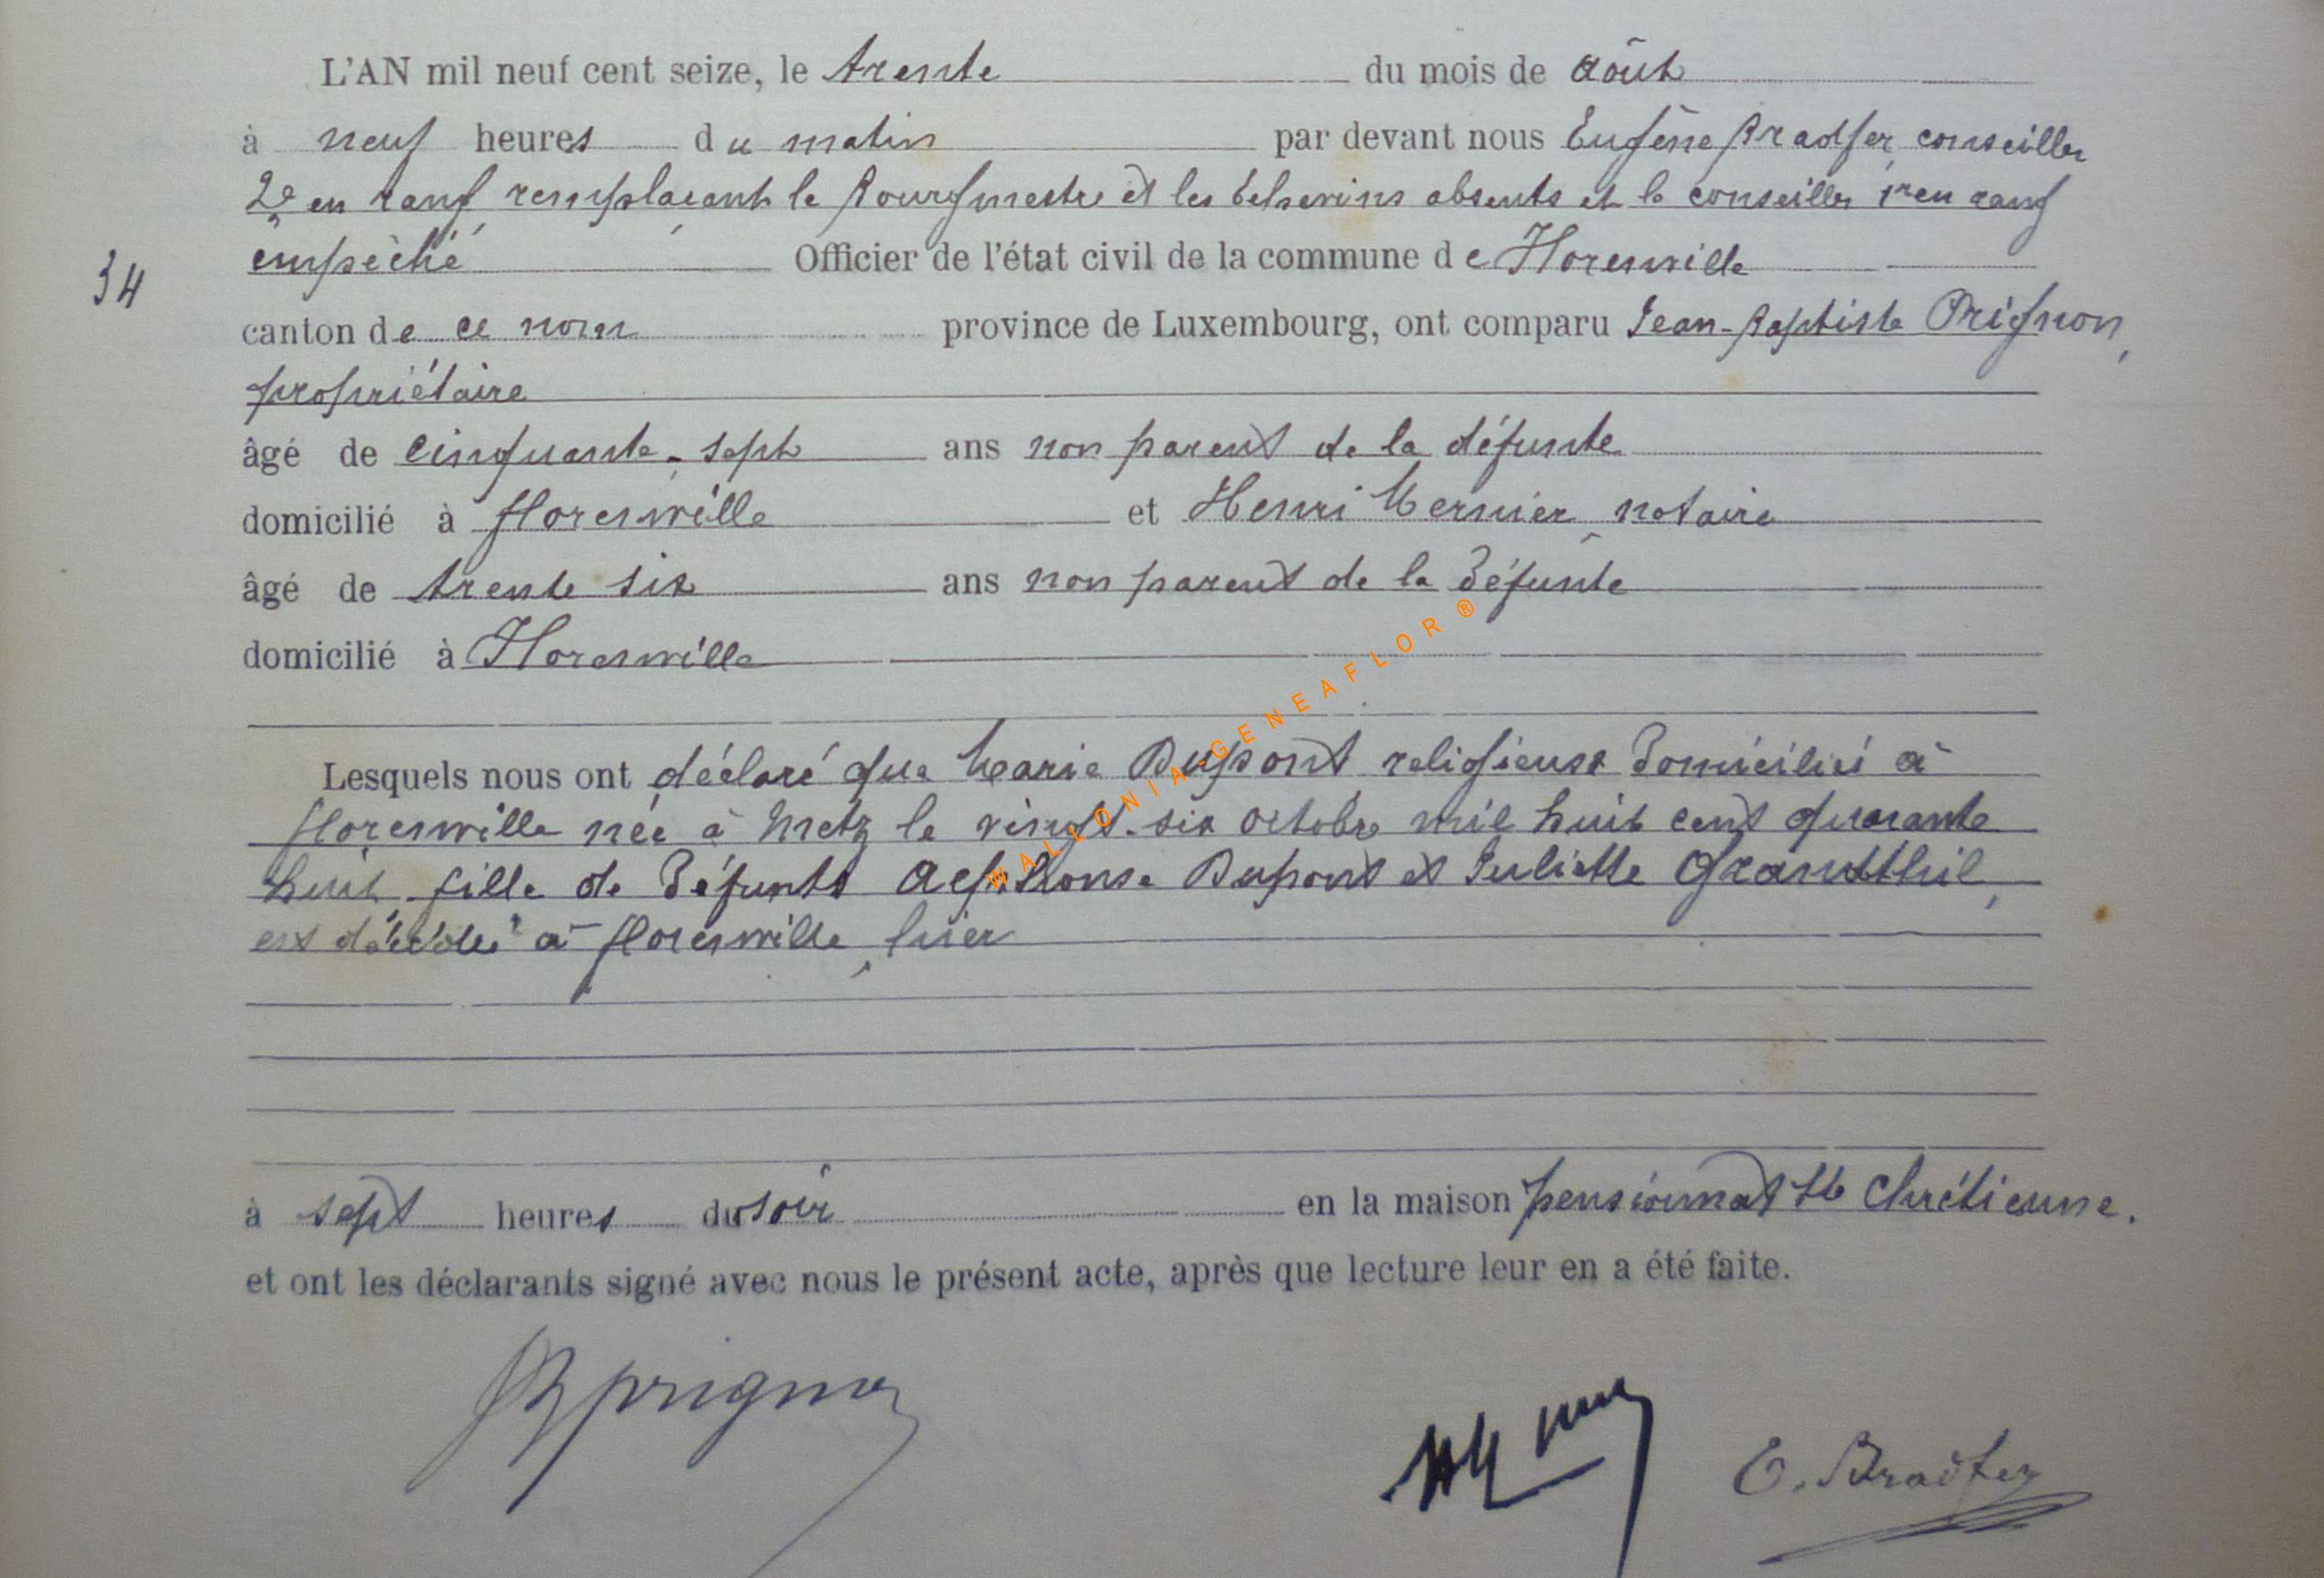 L'AN mil neuf cent seize, le trente du mois de août
à neuf heures du matin par devant nous Eugène Bradfer, conseiller
2e en rang remplaçant le Bourgmestre et les Echevins absents et le conseiller 1r en rang
empêché Officier de l'état civil de la commune de Florenville
34
canton de ce nom province de Luxembourg, ont comparu Jean-Baptiste Prignon,
propriétaire
âgé de cinquante-sept ans non parent de la défunte
domicilié à Florenville et Henri Mernier, notaire
âgé de trente six ans non parent de la défunte
domicilié à Florenville
WALLONIA-GENEAFLOR ®
Lesquels nous ont déclaré que Marie Dupont, religieuse domiciliée à
Florenville née à Metz le vingt-six octobre mil huit cent quarante
huit, fille de défunts Alphonse Dupont et Juliette Grandthil,
est décédée à Florenville, hier
à sept heures du soir en la maison pensionnat Ste Chrétienne.
et ont les déclarants signé avec nous le présent acte, après que lecture leur en a été faite.
JBprignon
E. Bradfer